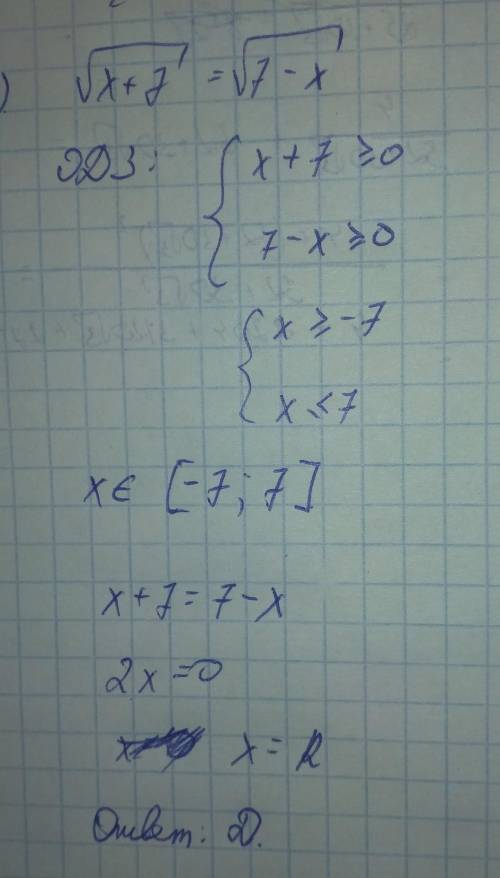 ) √(x+7) = √(7-x)
ОДЗ: { x+7 ≥ 0
7-x ≥ 0
{ x ≥ -7
x ≤ 7
x ∈ [-7; 7]
x+7 = 7-x
2x = 0
x = R
Ответ: D.